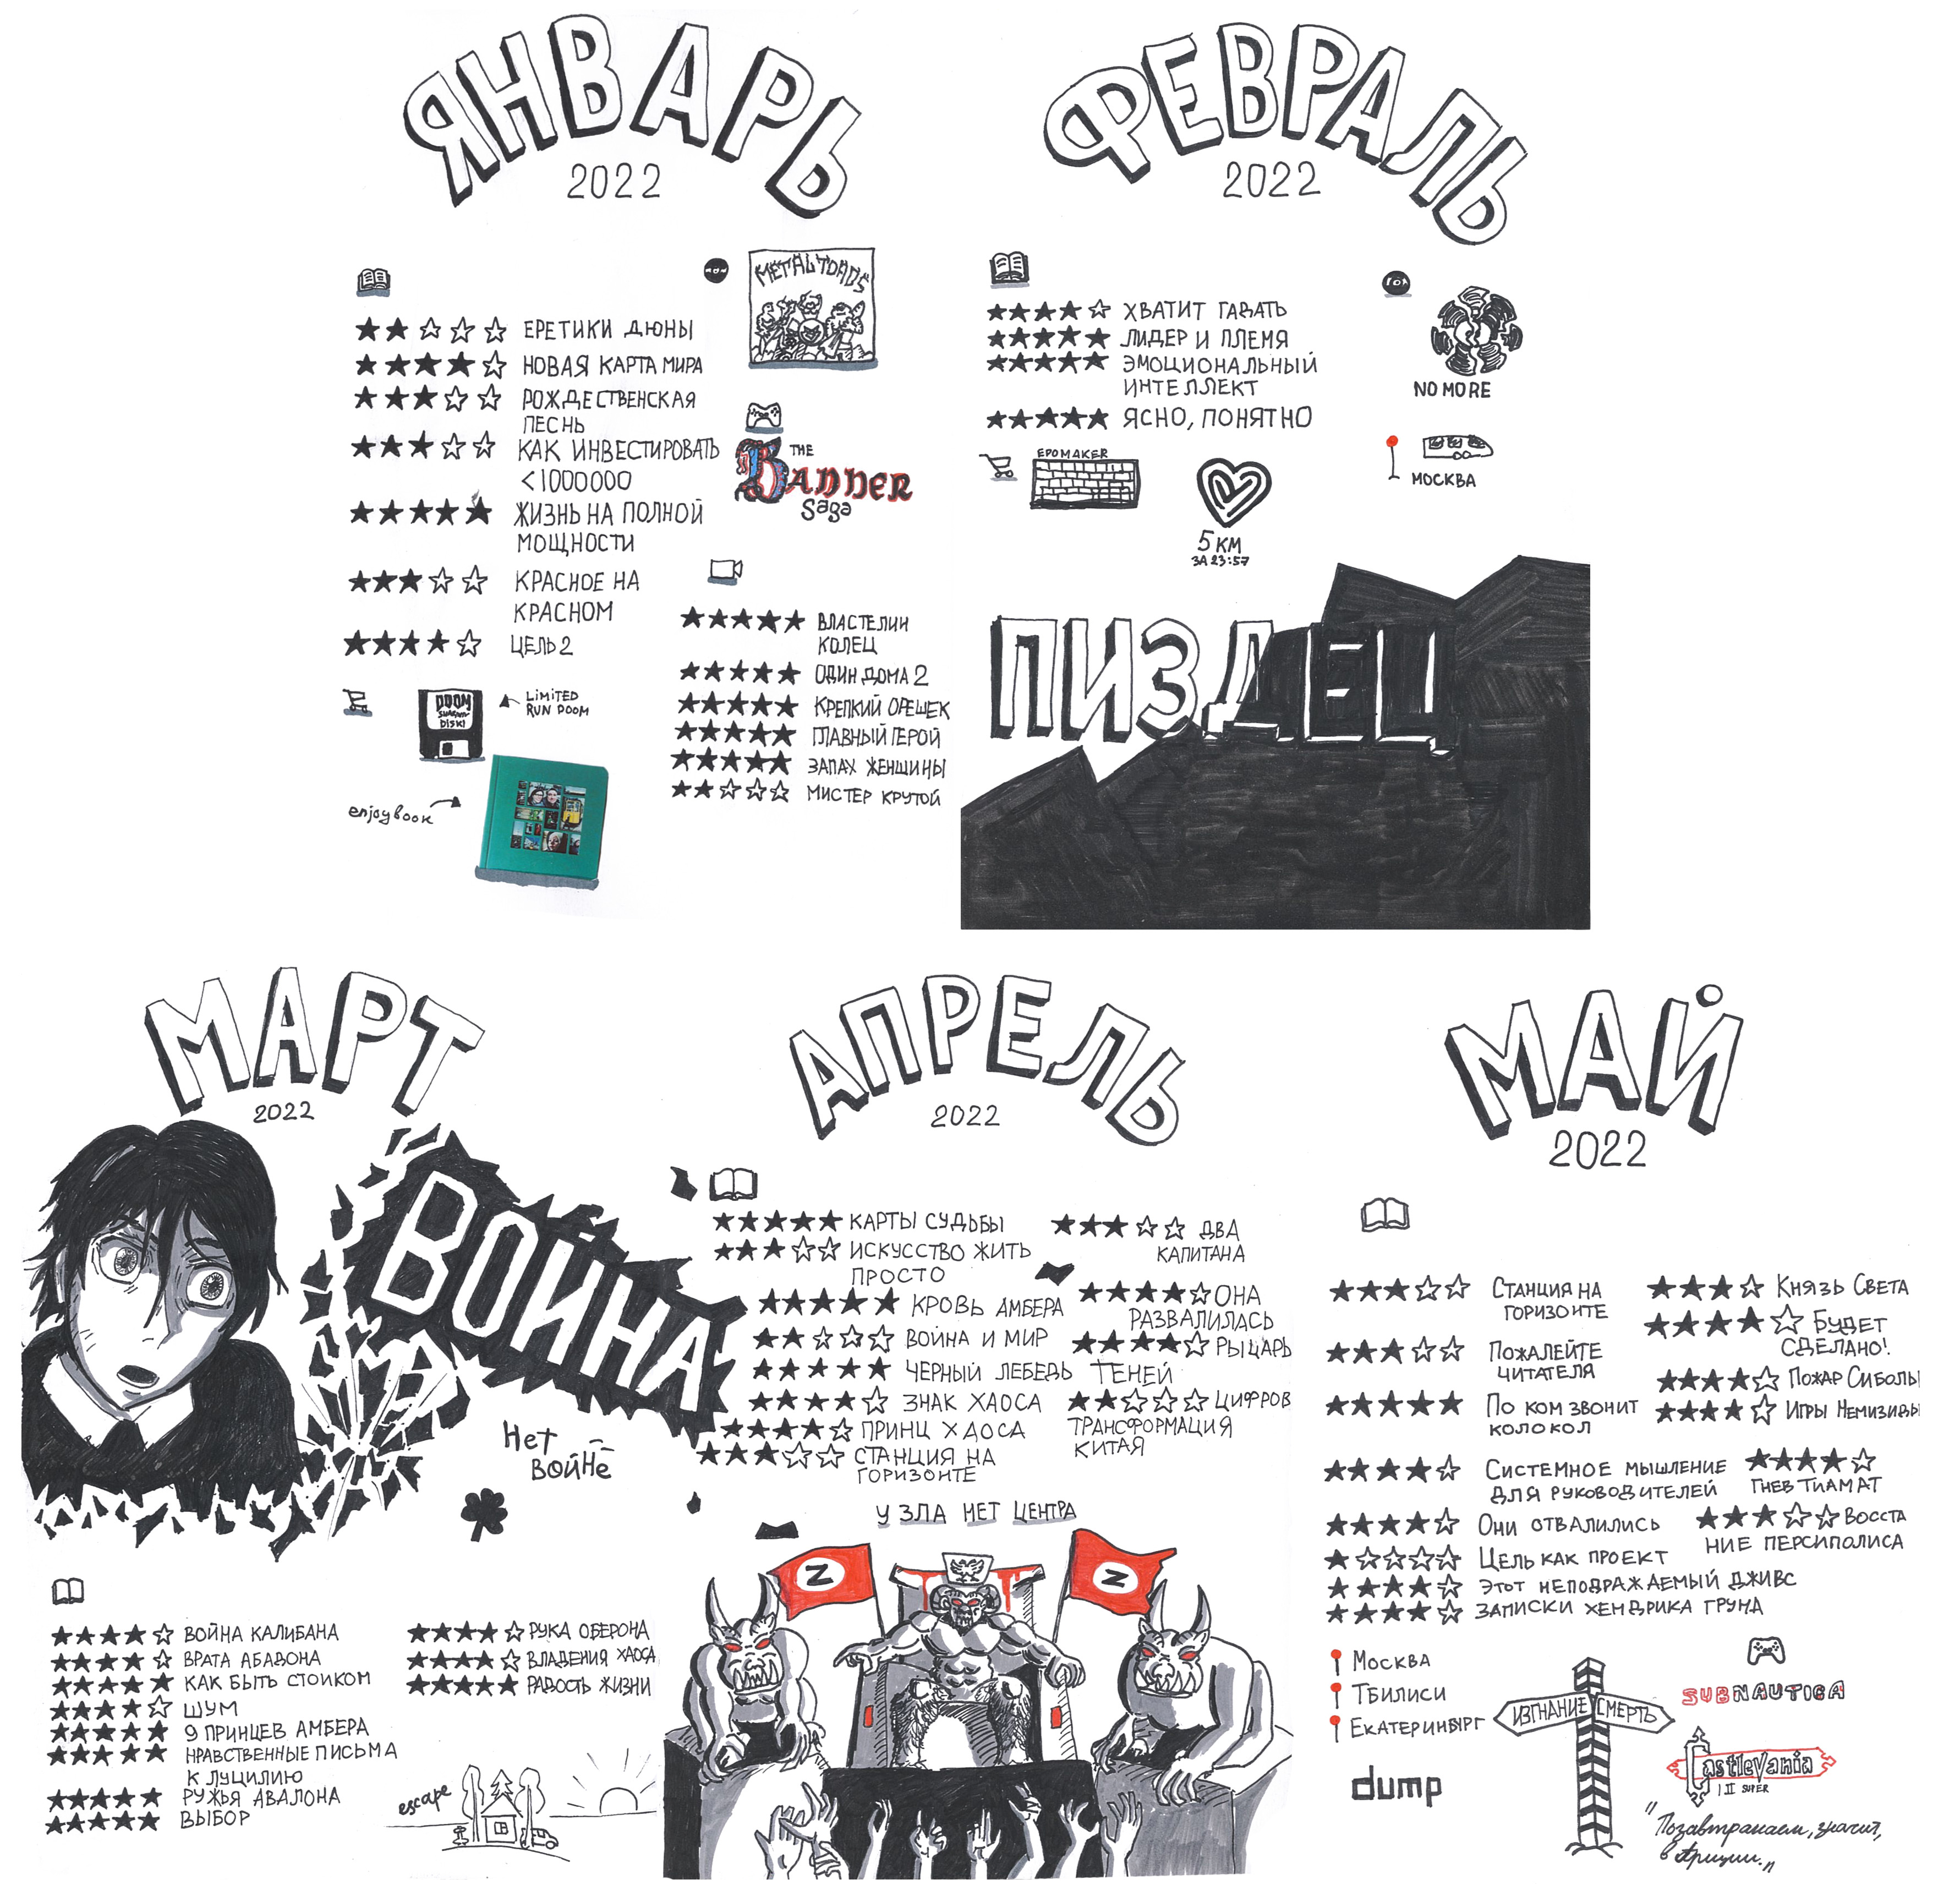 ЯНВАРЬ
2022
ЕРЕТИКИ ДЮНЫ
НОВАЯ КАРТА МИРА
РОЖДЕСТВЕНСКАЯ
ПЕСНЬ
КАК ИНВЕСТИРОВАТЬ
<1000000
ЖИЗНЬ НА ПОЛНОЙ
МОЩНОСТИ
КРАСНОЕ НА
КРАСНОМ
ЦЕЛЬ 2
DOOM
DISK1
LIMITED
RUN DOOM
enjoybook
METAL TOADS
THE
BANNER
Saga
ВЛАСТЕЛИН
КОЛЕЦ
ОДИН ДОМА 2
КРЕПКИЙ ОРЕШЕК
ГЛАВНЫЙ ГЕРОЙ
ЗАПАХ ЖЕНЩИНЫ
МИСТЕР КРУТОЙ
ФЕВРАЛЬ
2022
ХВАТИТ ГАДАТЬ
ЛИДЕР И ПЛЕМЯ
ЭМОЦИОНАЛЬНЫЙ
ИНТЕЛЛЕКТ
ЯСНО, ПОНЯТНО
NO MORE
МОСКВА
EPOMAKER
5 КМ
ЗА 23:57
ПИЗДЕЦ
МАРТ
2022
ВОЙНА
Нет
войне
ВОЙНА КАЛИБАНА
ВРАТА АБАДОНА
КАК БЫТЬ СТОИКОМ
ШУМ
9 ПРИНЦЕВ АМБЕРА
НРАВСТВЕННЫЕ ПИСЬМА
К ЛУЦИЛИЮ
РУЖЬЯ АВАЛОНА
ВЫБОР
РУКА ОБЕРОНА
ВЛАДЕНИЯ ХАОСА
РАДОСТЬ ЖИЗНИ
escape
АПРЕЛЬ
2022
КАРТЫ СУДЬБЫ
ИСКУССТВО ЖИТЬ
ПРОСТО
КРОВЬ АМБЕРА
ВОЙНА И МИР
ЧЕРНЫЙ ЛЕБЕДЬ
ЗНАК ХАОСА
ПРИНЦ ХАОСА
СТАНЦИЯ НА
ГОРИЗОНТЕ
ДВА
КАПИТАНА
ОНА
РАЗВАЛИЛАСЬ
РЫЦАРЬ
ТЕНЕЙ
ЦИФРОВ
ТРАНСФОРМАЦИЯ
КИТАЯ
У ЗЛА НЕТ ЦЕНТРА
Z
Z
МАЙ
2022
СТАНЦИЯ НА
ГОРИЗОНТЕ
ПОЖАЛЕЙТЕ
ЧИТАТЕЛЯ
ПО КОМ ЗВОНИТ
КОЛОКОЛ
СИСТЕМНОЕ МЫШЛЕНИЕ
ДЛЯ РУКОВОДИТЕЛЕЙ
ОНИ ОТВАЛИЛИСЬ
ЦЕЛЬ КАК ПРОЕКТ
ЭТОТ НЕПОДРАЖАЕМЫЙ ДЖИВС
ЗАПИСКИ ХЕНДРИКА ГРУНА
КНЯЗЬ СВЕТА
БУДЕТ
СДЕЛАНО!
ПОЖАР СИБОЛЫ
ИГРЫ НЕМИЗИДЫ
ГНЕВ ТИАМАТ
ВОССТА
НИЕ ПЕРСИПОЛИСА
МОСКВА
ТБИЛИСИ
ЕКАТЕРИНБУРГ
dump
ИЗГНАНИЕ СМЕРТЬ
SUBNAUTICA
Castlevania
I II SUPER
"Позавтракаем, значит,
в Ариции."